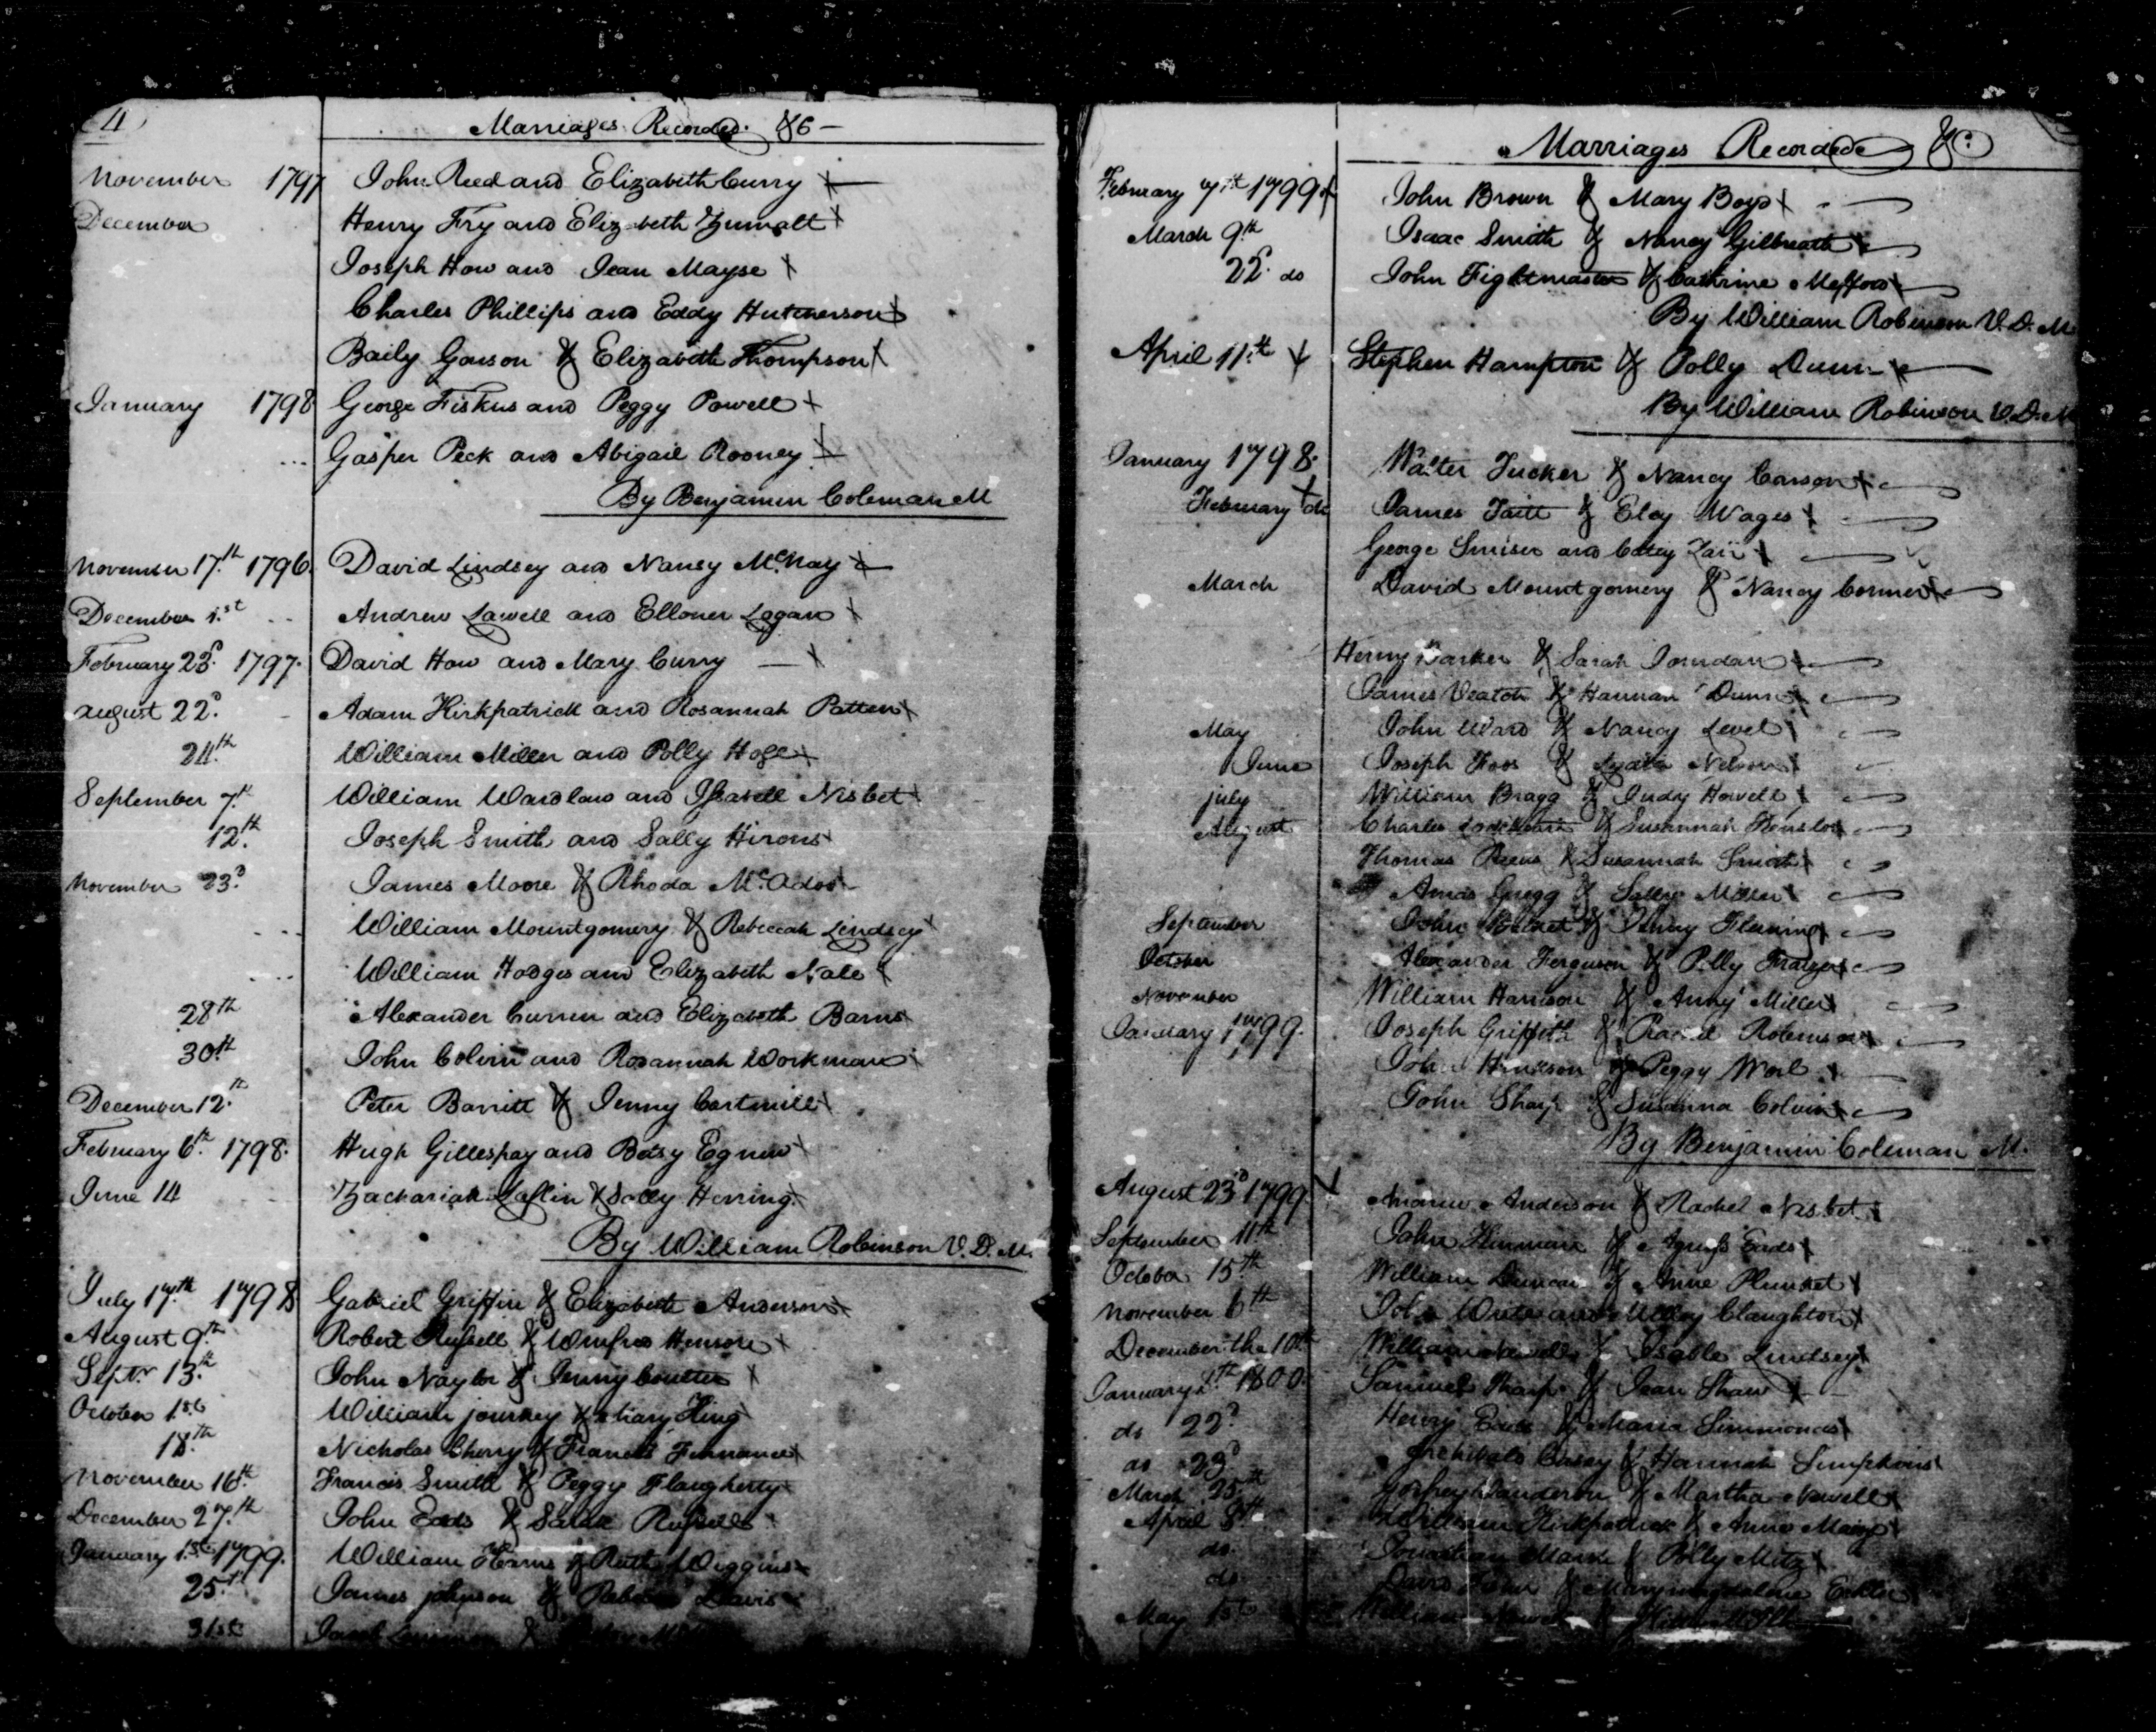 4
Marriages Recorded &c
November 1797 John Reed and Elizabeth Curry
December Henry Fry and Elizabeth Zumalt
Joseph How and Jean Mayse
Charles Phillips and Eddy Hutcherson
Baily Gorson & Elizabeth Thompson
January 1798 George Fiskus and Peggy Powell
Gasper Peck and Abigail Rooney
By Benjamin Coleman M
November 17th 1796. David Lindsey and Nansy McNay
December 1st Andrew Lawell and Elloner Logan
February 23d 1797. David How and Mary Curry
August 22d Adam Kirkpatrick and Rosannah Patten
24th William Miller and Polly Hoge
September 7th William Wardlaw and Issabell Nisbet
12th Joseph Smith and Sally Hirons
November 23d James Moore & Rhoda McAdoo
William Mountgomery & Rebeccah Lindsey
William Hodges and Elizabeth Nale
28th Alexander Curren and Elizabeth Barns
30th John Colvin and Rosannah Workman
December 12th Peter Barritt & Jenny Cartmill
February 6th 1798. Hugh Gillespay and Betsy Egnew
June 14 Zachariah Laflin & Sally Herring
By William Robinson V. D. M.
July 17th 1798 Gabriel Griffin & Elizabeth Anderson
August 9th Robert Russell & Winfred Hensore
Septr 13th John Naylor & Jenny Coulter
October 1st William journey & Mary King
18th Nicholas Cherry & Francis
November 16th Francis Smith & Peggy Flaugherty
December 27th John Eads & Sarah Russell
January 1st 1799. William & Ruth Wiggins
25th James johnson & Davis
31st
Marriages Recorded &c
February 7th 1799 John Brown & Mary Boyd
March 9th Isaac Smith & Nancy Gilbreath
22d do John Fightmaster & Cathrine Mefford
By William Robinson V. D. M
April 11th Stephen Hampton & Polly Dunn
By William Robinson V. D. M
January 1798. Walter Tucker & Nancy Carson
February do James Taitt & Elcy Wages
George Smiser and Catey Lair
March David Mountgomery & Nancy Corner
Henry Barker & Sarah Jourdan
James Veatch & Hannah Dunn
May John Ward & Nancy Level
June Joseph Foos & Lydia Nelson
july William Bragg & Judy Howell
August Charles & Susannah
Thomas & Susannah Smith
Amos Gregg & Sally Miller
September John & Anny Fleming
October Alexander Ferguson & Polly Fratzer
November William Harrison & Anny Miller
January 1799. Joseph Griffith & Rachel Robinson
John Hinkson & Peggy
John Sharp & Susanna Colvin
By Benjamin Coleman M.
August 23d 1799 Andrew Anderson & Rachel Nisbet
September 11th John & Agness Eads
October 15th William Duncan & Anne Plunket
November 6th John and Milley Claughton
December the 10th William & Isable Lindsey
January 1800. Samuel Tharp & Jean Shaw
do 22d Henry Eads & Maria Simmonds
do 23d Archibald Casey & Hannah Simpkins
March 25th & Martha Newell
April 8th William Kirkpatrick & Anne
do. Jonathan & Polly Metz
do David & Marymagdalene
May 1st William